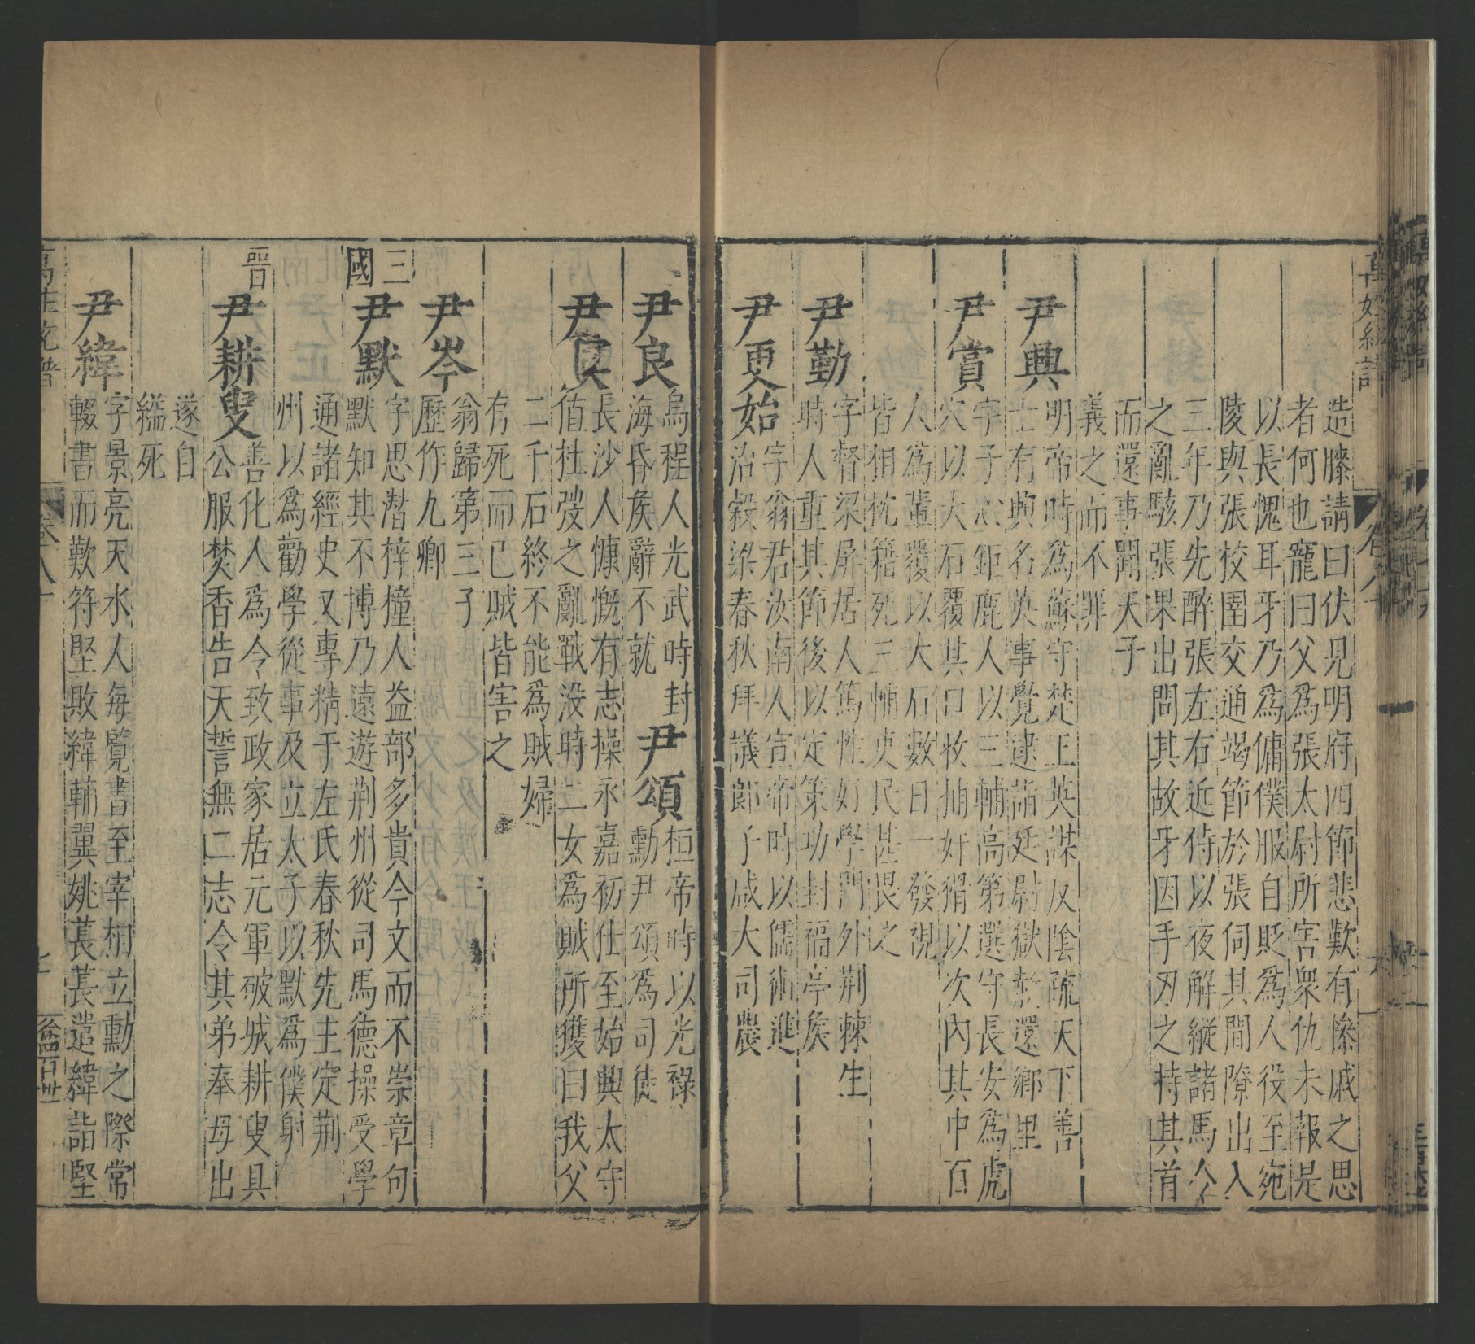 造膝請曰伏見明府四節悲歎有慘戚之思
者何也寵曰父為張太尉所害衆仇未報是
以長愧耳牙乃為傭僕服自貶為人役至宛
陵與張校圉交通竭節於張伺其間隙出入
三年乃先醉張左右近侍以夜解縱諸馬令
之亂駭張果出問其故牙因手刃之持其首
而還事聞天子
義之而不罪
尹興 明帝時為蘇守楚王英謀反陰疏天下善
士有興名英事覺逮詣廷尉獄對還鄉里
尹賞 字子心鉅鹿人以三輔高第選守長安為虎
穴以大石覆其口收捕奸猾以次內其中百
人為輩覆以大石數日一發視
皆相枕籍死三輔吏民甚畏之
尹勤 字督梁屏居人篤性好學門外荆棘生
時人重其節後以定策功封福亭侯
尹更始 字翁君汝南人宣帝時以儒術進
治穀梁春秋拜議郎子咸大司農
尹良 烏程人光武時封
海昏侯辭不就
尹頌 桓帝時以光祿
勳尹頌為司徒
尹良 長沙人慷慨有志操永嘉初仕至始興太守
值杜弢之亂戰沒時二女為賊所獲曰我父
二千石終不能為賊婦
有死而已賊皆害之
尹岑 翁歸第三子
歷作九卿
三國
尹默 字思潛梓橦人益部多貴今文而不崇章句
默知其不博乃遠遊荆州從司馬德操受學
通諸經史又專精于左氏春秋先主定荆
州以為勸學從事及立太子以默為僕射
晋
尹耕叟 善化人為令致政家居元軍破城耕叟具
公服焚香告天誓無二志令其弟奉母出
遂自
縊死
尹緯 字景亮天水人每覽書至宰相立勳之際常
輟書而歎符堅敗緯輔翼姚萇萇遣緯詣堅